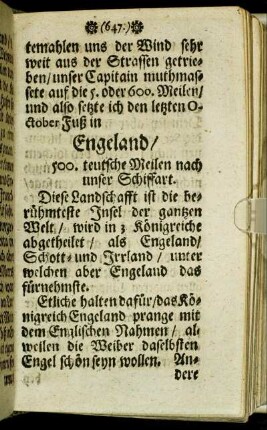 (647.)
temahlen uns der Wind sehr
weit aus der Strassen getrie-
ben/ unser Capitain muthmas-
sete auf die 5. oder 600. Meilen/
und also setzte ich den letzten O-
ctober Fuß in
Engeland/
500. teutsche Meilen nach
unser Schiffart.
Diese Landschafft ist die be-
rühmteste Insel der gantzen
Welt/ wird in 3 Königreiche
abgetheilet/ als Engeland/
Schott- und Irrland/ unter
welchen aber Engeland das
fürnehmste.
Etliche halten dafür/ das Kö-
nigreich Engeland prange mit
dem Englischen Nahmen/ al-
weilen die Weiber daselbsten
Engel schön seyn wollen. An-
dere